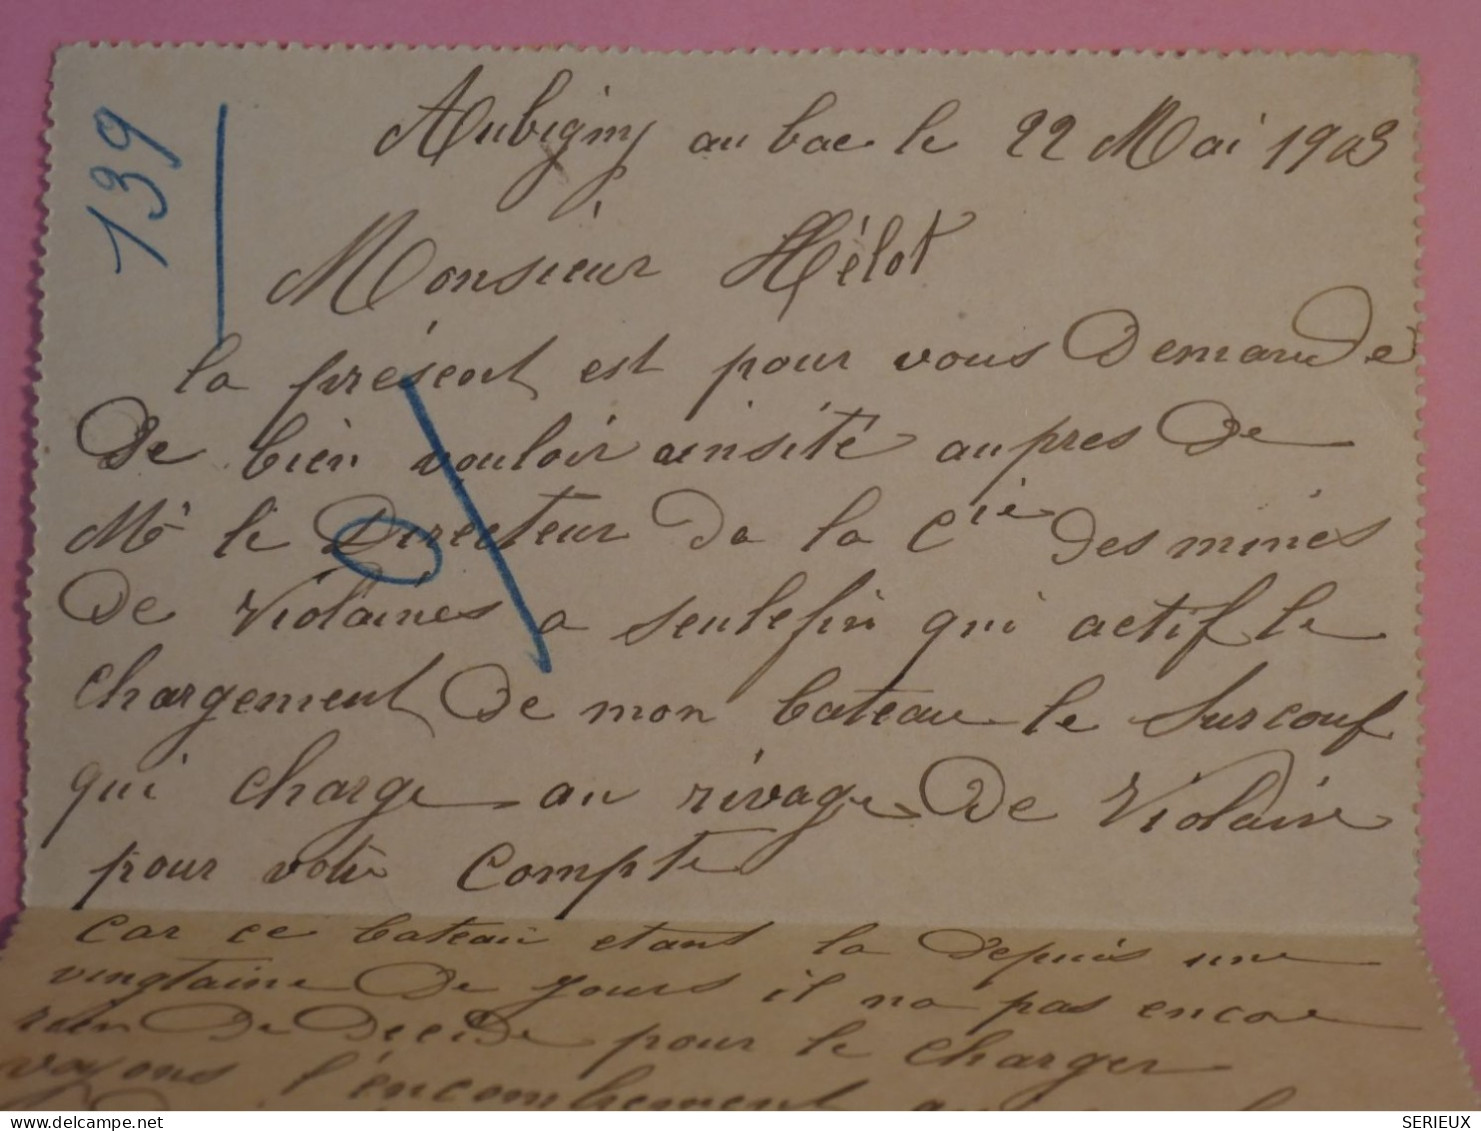 139
Aubigny au bac le 22 Mai 1903
Monsieur Hélot
la présent est pour vous demande
De bien vouloir insité aupres De
Mr le Directeur De la Cie des mines
De Violaines a seulefin qui actif le
chargement De mon bateau le Surcouf
qui charge au rivage De Violaine
pour votre Compte
Car ce bateau etant la depuis une
vingtaine De jours il na pas encore
rien De Decide pour le charger
voyons l'encombrement
SERIEUX